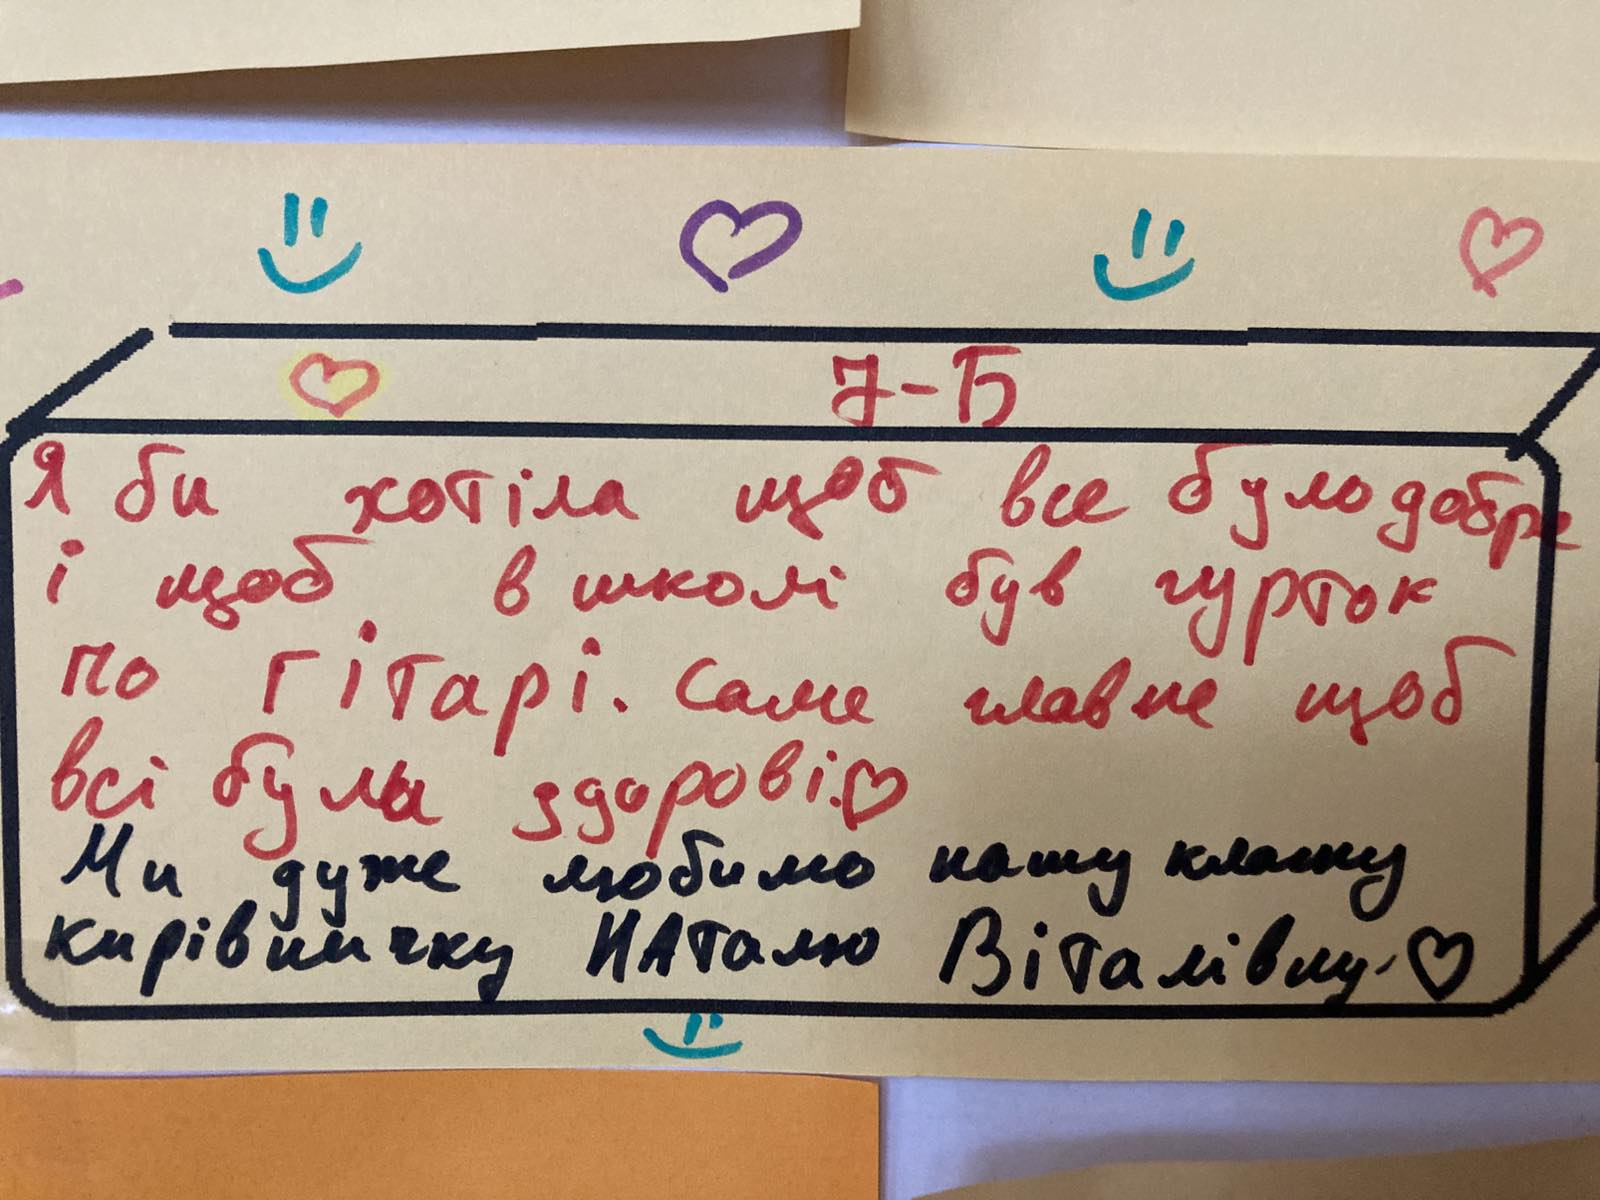 7-Б
Я би хотіла щоб все було добре
і щоб в школі був гурток
по гітарі. Саме главне щоб
всі були здорові.
Ми дуже любимо нашу класну
кирівничку НАталю Віталівну.